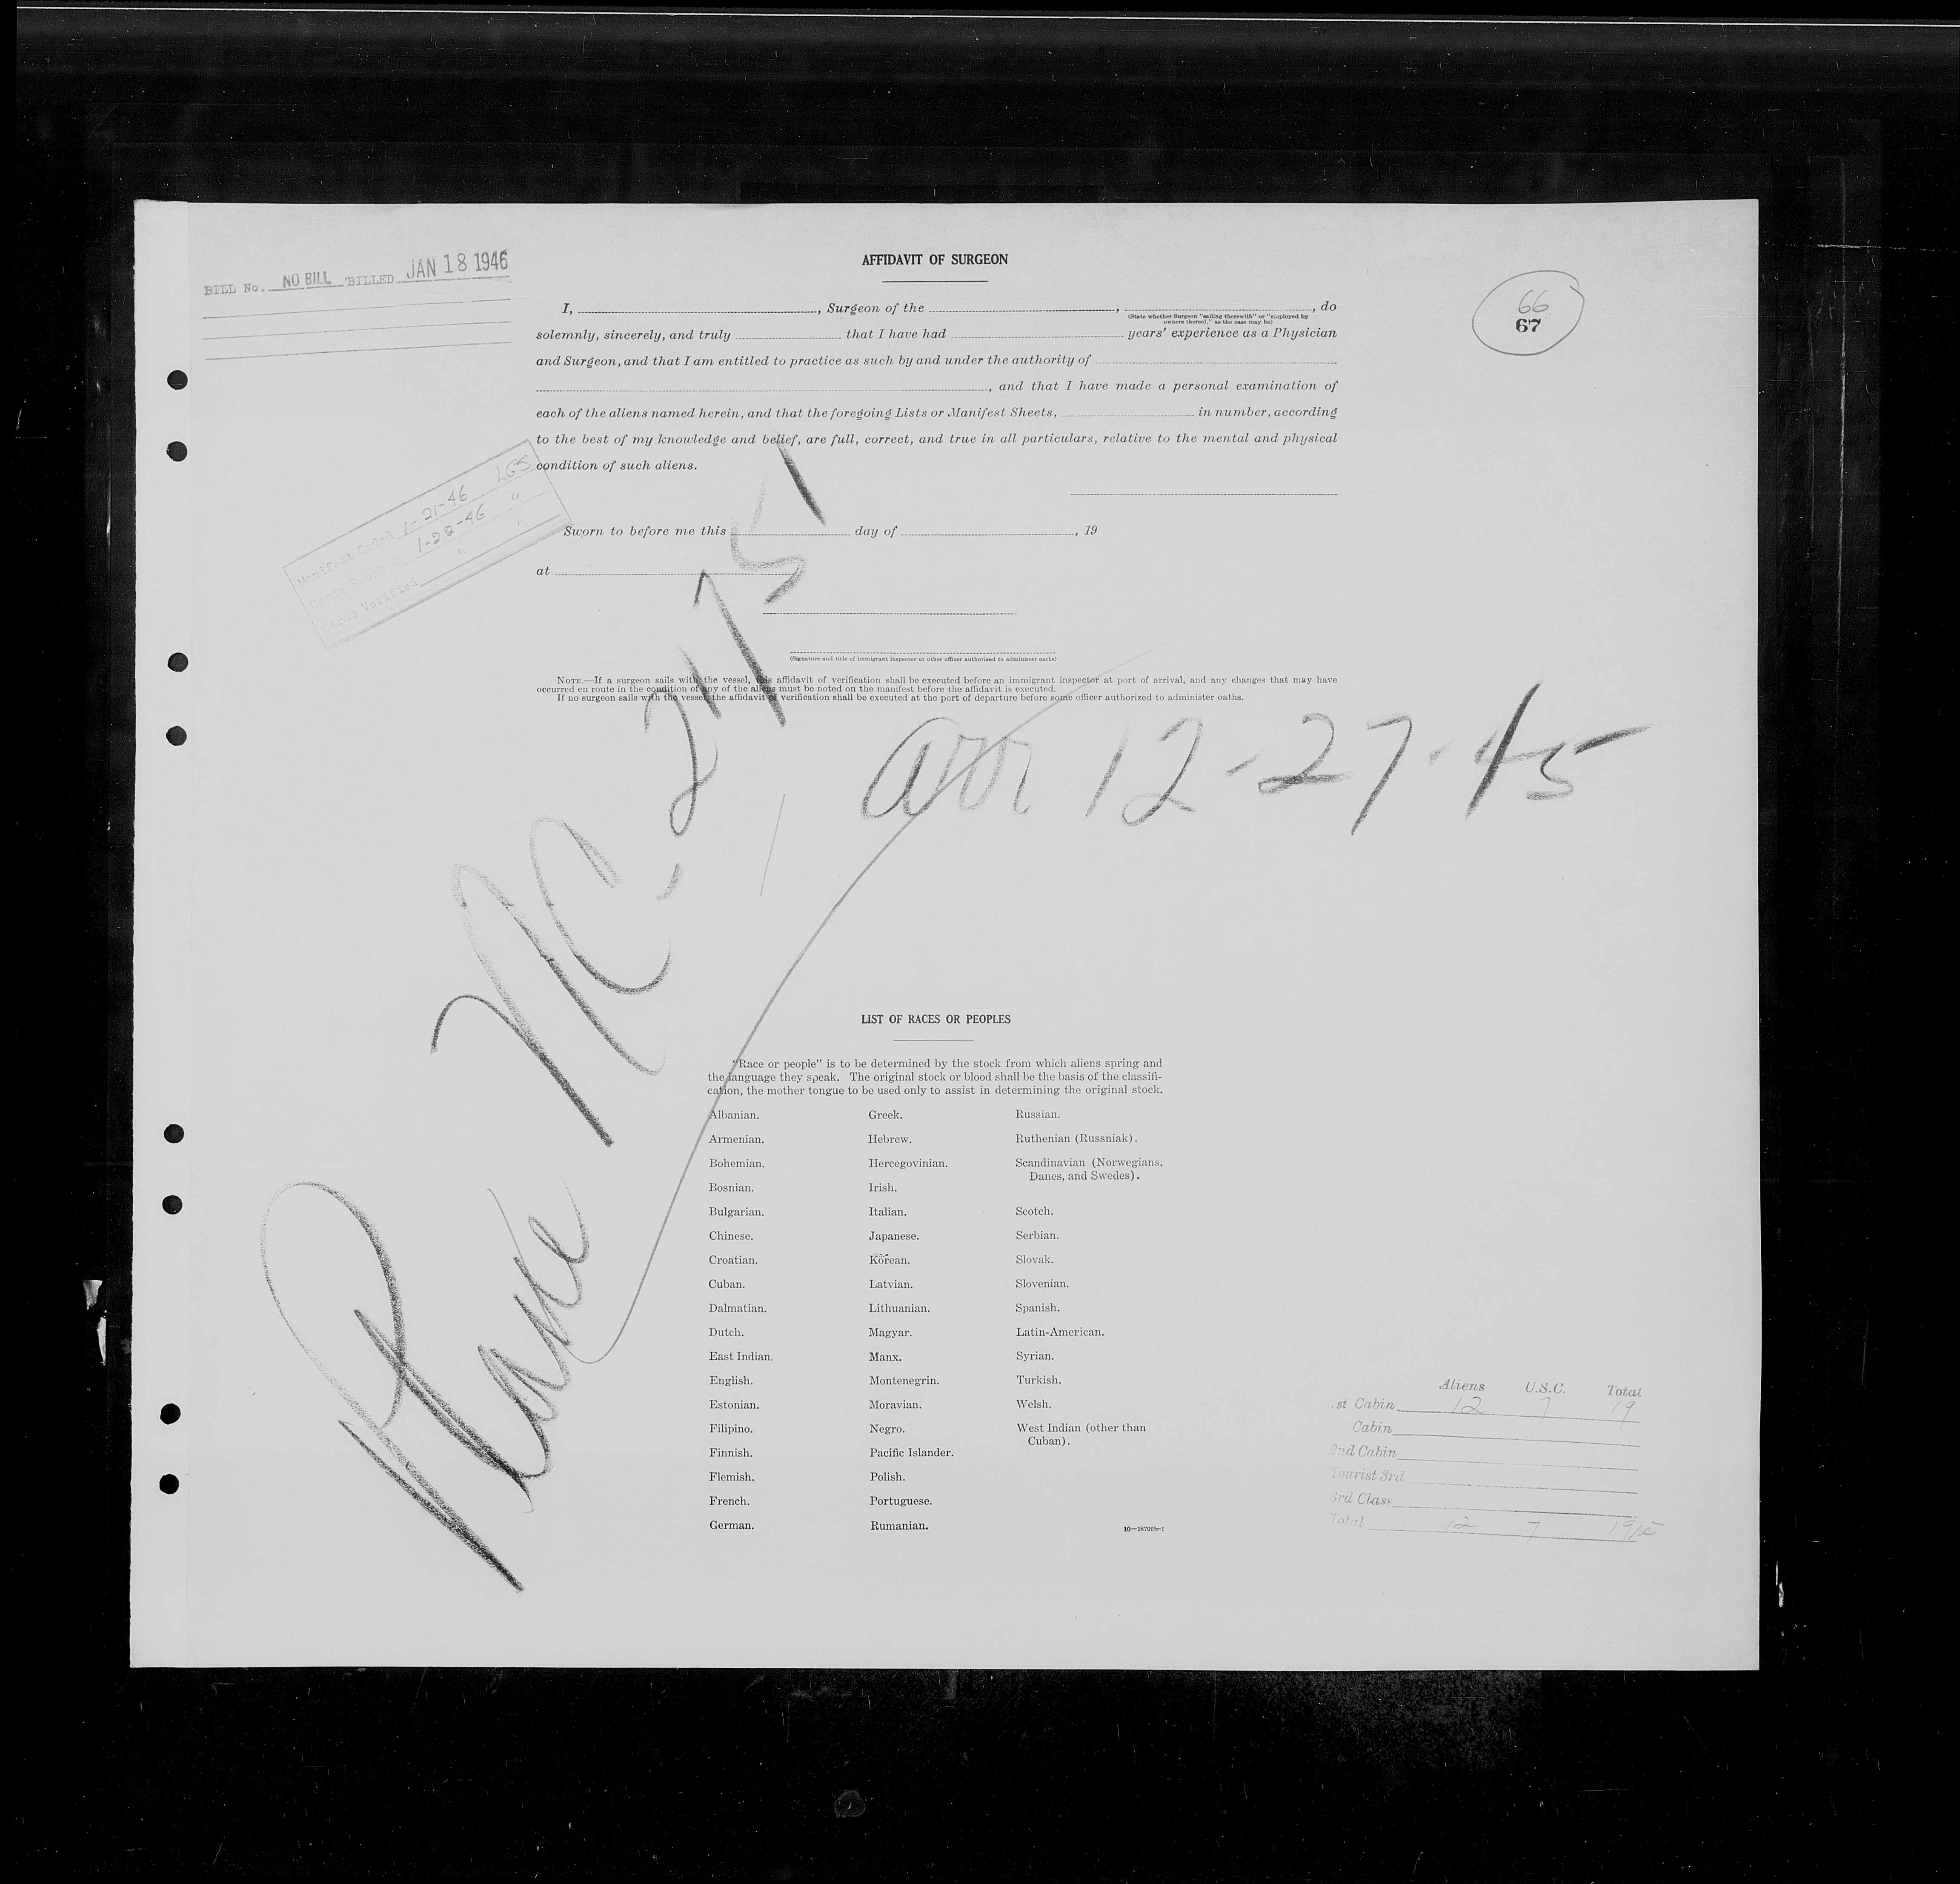 BILL No. NO BILL BILLED JAN 18 1946
AFFIDAVIT OF SURGEON
66
67
I, , Surgeon of the , , do
(State whether Surgeon "sailing therewith" or "employed by
owners thereof," as the case may be)
solemnly, sincerely, and truly that I have had years' experience as a Physician
and Surgeon, and that I am entitled to practice as such by and under the authority of
, and that I have made a personal examination of
each of the aliens named herein, and that the foregoing Lists or Manifest Sheets, in number, according
to the best of my knowledge and belief, are full, correct, and true in all particulars, relative to the mental and physical
condition of such aliens.
Manifest Coded 1-21-46 LGS
Cards Punched 1-22-46 "
Cards Verified " "
Sworn to before me this day of , 19
at
(Signature and title of immigrant inspector or other officer authorized to administer oaths)
NOTE.—If a surgeon sails with the vessel, this affidavit of verification shall be executed before an immigrant inspector at port of arrival, and any changes that may have
occurred en route in the condition of any of the aliens must be noted on the manifest before the affidavit is executed.
If no surgeon sails with the vessel, the affidavit of verification shall be executed at the port of departure before some officer authorized to administer oaths.
Plane NC-
arr 12-27-45
LIST OF RACES OR PEOPLES
"Race or people" is to be determined by the stock from which aliens spring and
the language they speak. The original stock or blood shall be the basis of the classifi-
cation, the mother tongue to be used only to assist in determining the original stock.
Albanian.
Armenian.
Bohemian.
Bosnian.
Bulgarian.
Chinese.
Croatian.
Cuban.
Dalmatian.
Dutch.
East Indian.
English.
Estonian.
Filipino.
Finnish.
Flemish.
French.
German.
Greek.
Hebrew.
Hercegovinian.
Irish.
Italian.
Japanese.
Korean.
Latvian.
Lithuanian.
Magyar.
Manx.
Montenegrin.
Moravian.
Negro.
Pacific Islander.
Polish.
Portuguese.
Rumanian.
Russian.
Ruthenian (Russniak).
Scandinavian (Norwegians,
Danes, and Swedes).
Scotch.
Serbian.
Slovak.
Slovenian.
Spanish.
Latin-American.
Syrian.
Turkish.
Welsh.
West Indian (other than
Cuban).
Aliens U.S.C. Total
st Cabin 12 7 19
Cabin
2nd Cabin
Tourist 3rd
3rd Class
Total 12 7 19